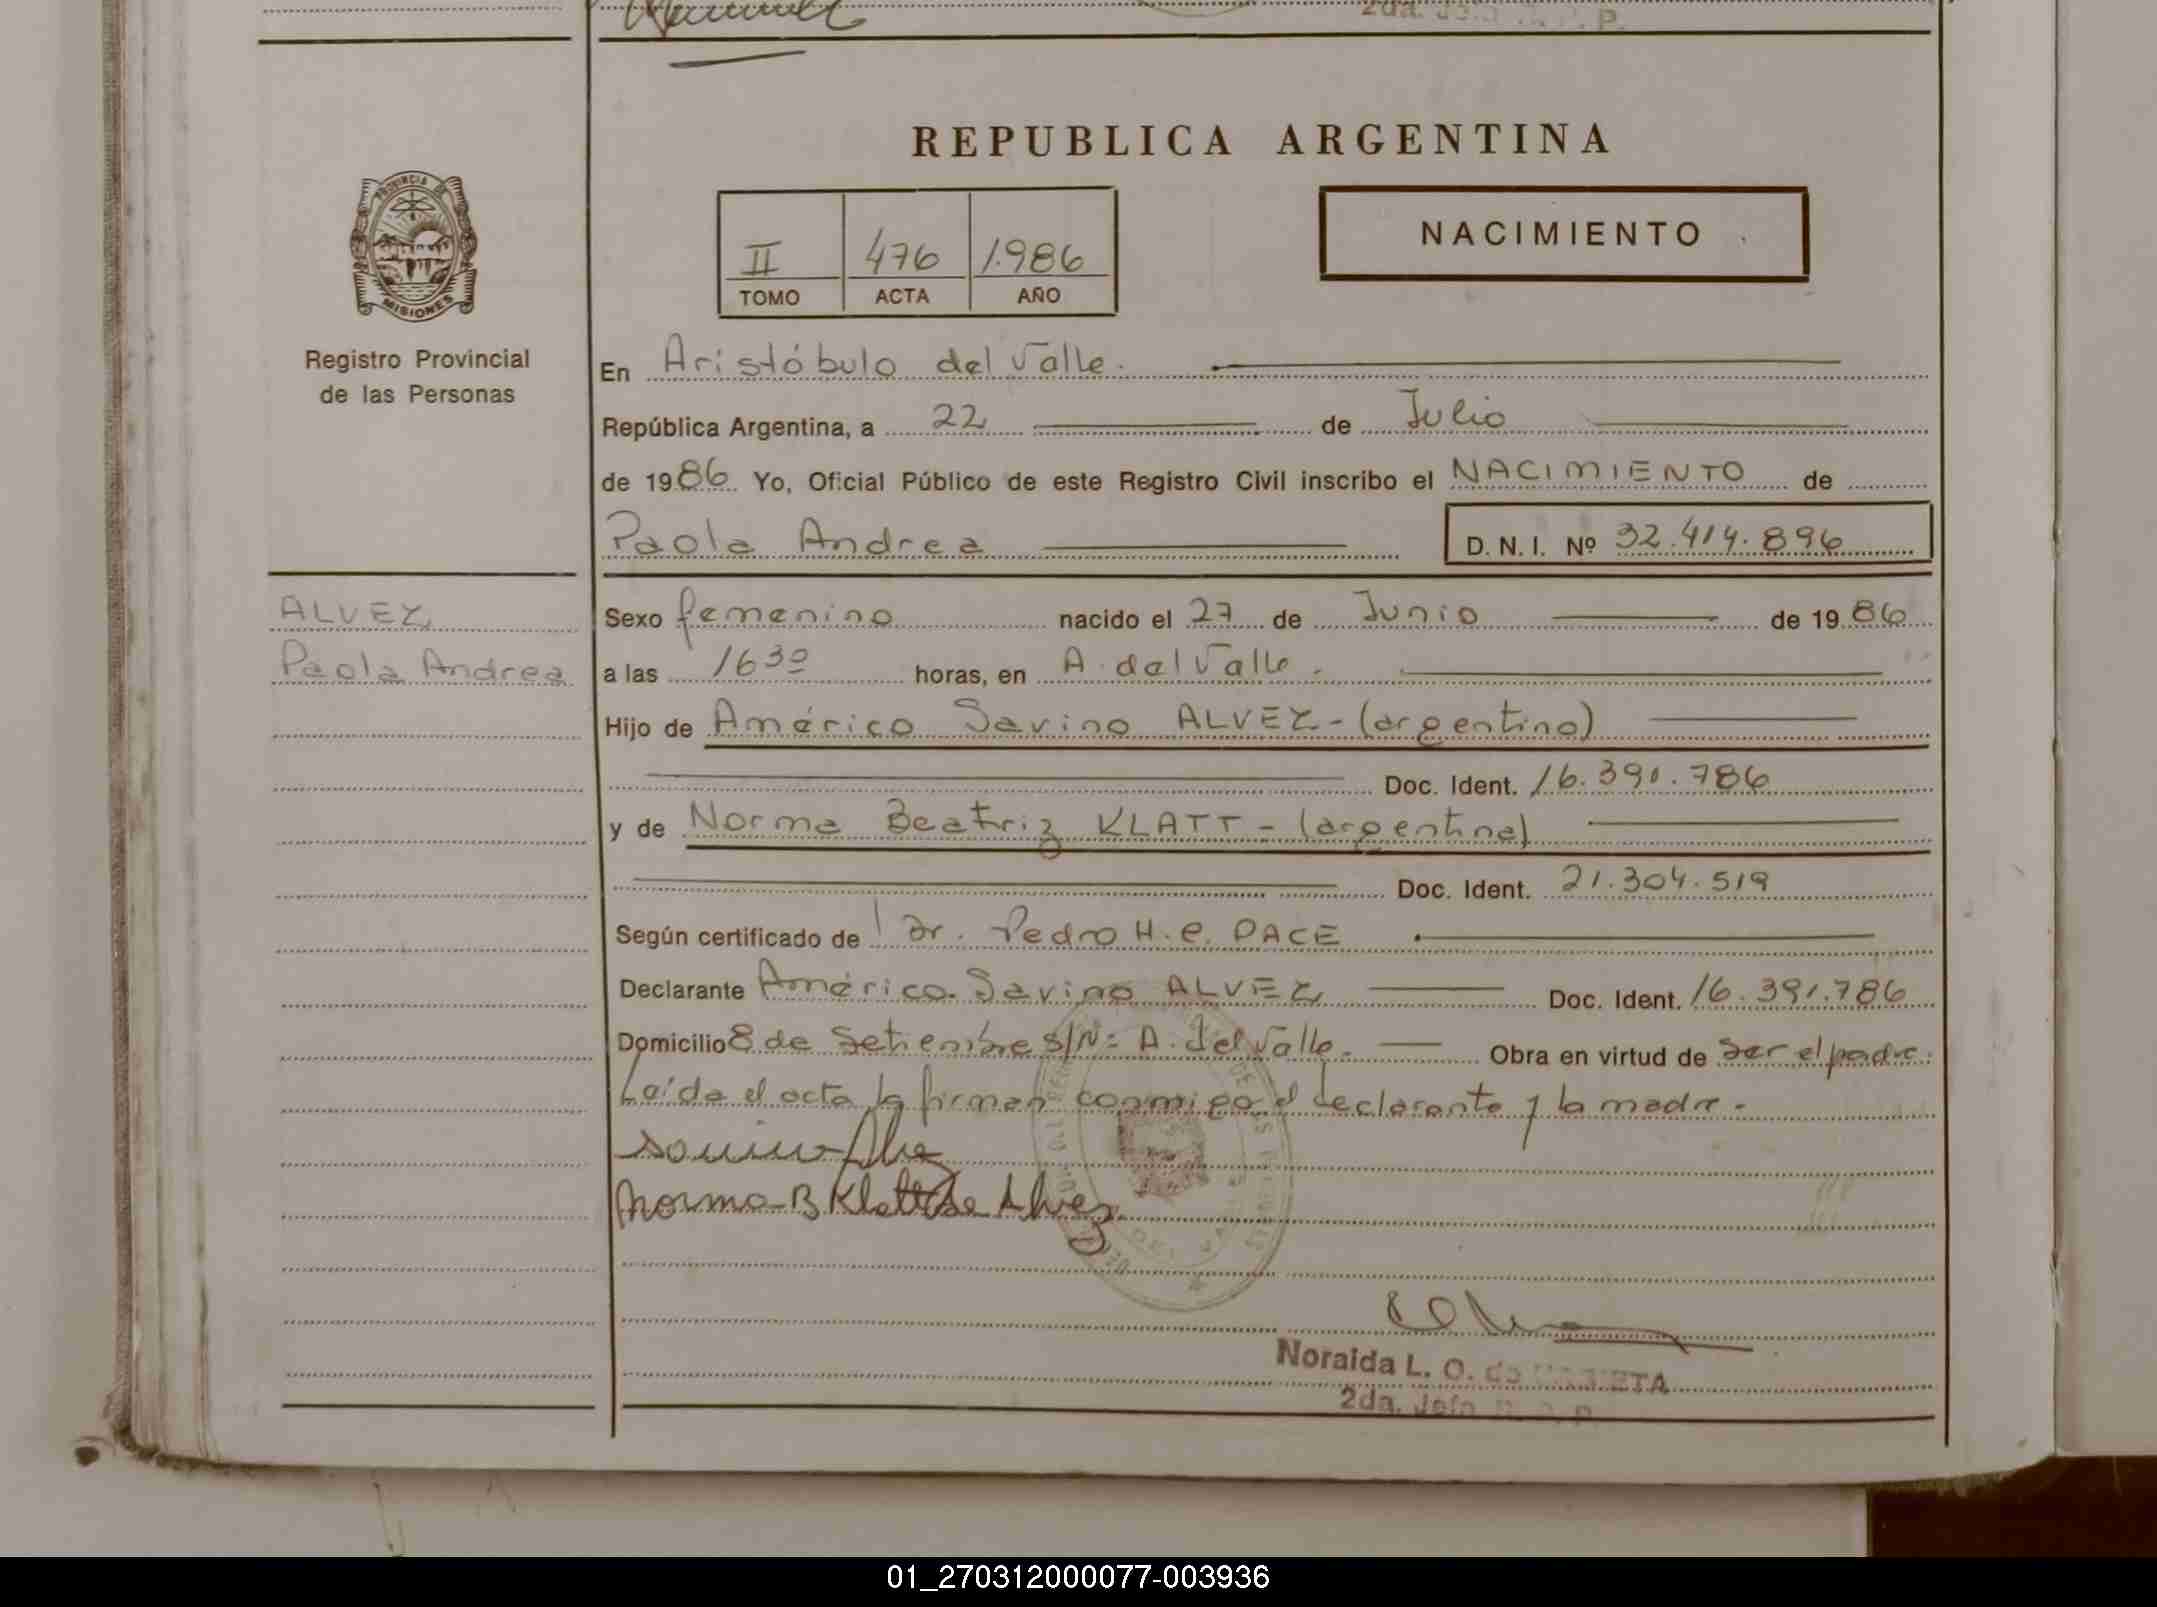 2da. Jefa R. P. P.
REPUBLICA ARGENTINA
PROVINCIA DE
MISIONES
Registro Provincial
de las Personas
II 476 1.986
TOMO ACTA AÑO
NACIMIENTO
En Aristóbulo del Valle.
República Argentina, a 22 de Julio
de 1986 Yo, Oficial Público de este Registro Civil inscribo el NACIMIENTO de
Paola Andrea D. N. I. Nº 32.414.896
ALVEZ
Paola Andrea
Sexo femenino nacido el 27 de Junio de 1986
a las 16 30 horas, en A. del Valle.
Hijo de Américo Savino ALVEZ - (argentino)
Doc. Ident. 16.391.786
y de Norma Beatriz KLATT - (argentina)
Doc. Ident. 21.304.519
Según certificado de Dr. Pedro H. C. PACE
Declarante Américo Savino ALVEZ Doc. Ident. 16.391.786
Domicilio 8 de Setiembre S/Nº A. del Valle. Obra en virtud de ser el padre.
Leída el acta, la firman conmigo el declarante y la madre.
Savino Alvez
Norma B Klatt de Alvez
Noraida L. O. de
2da. Jefa R. P. P.
01_270312000077-003936